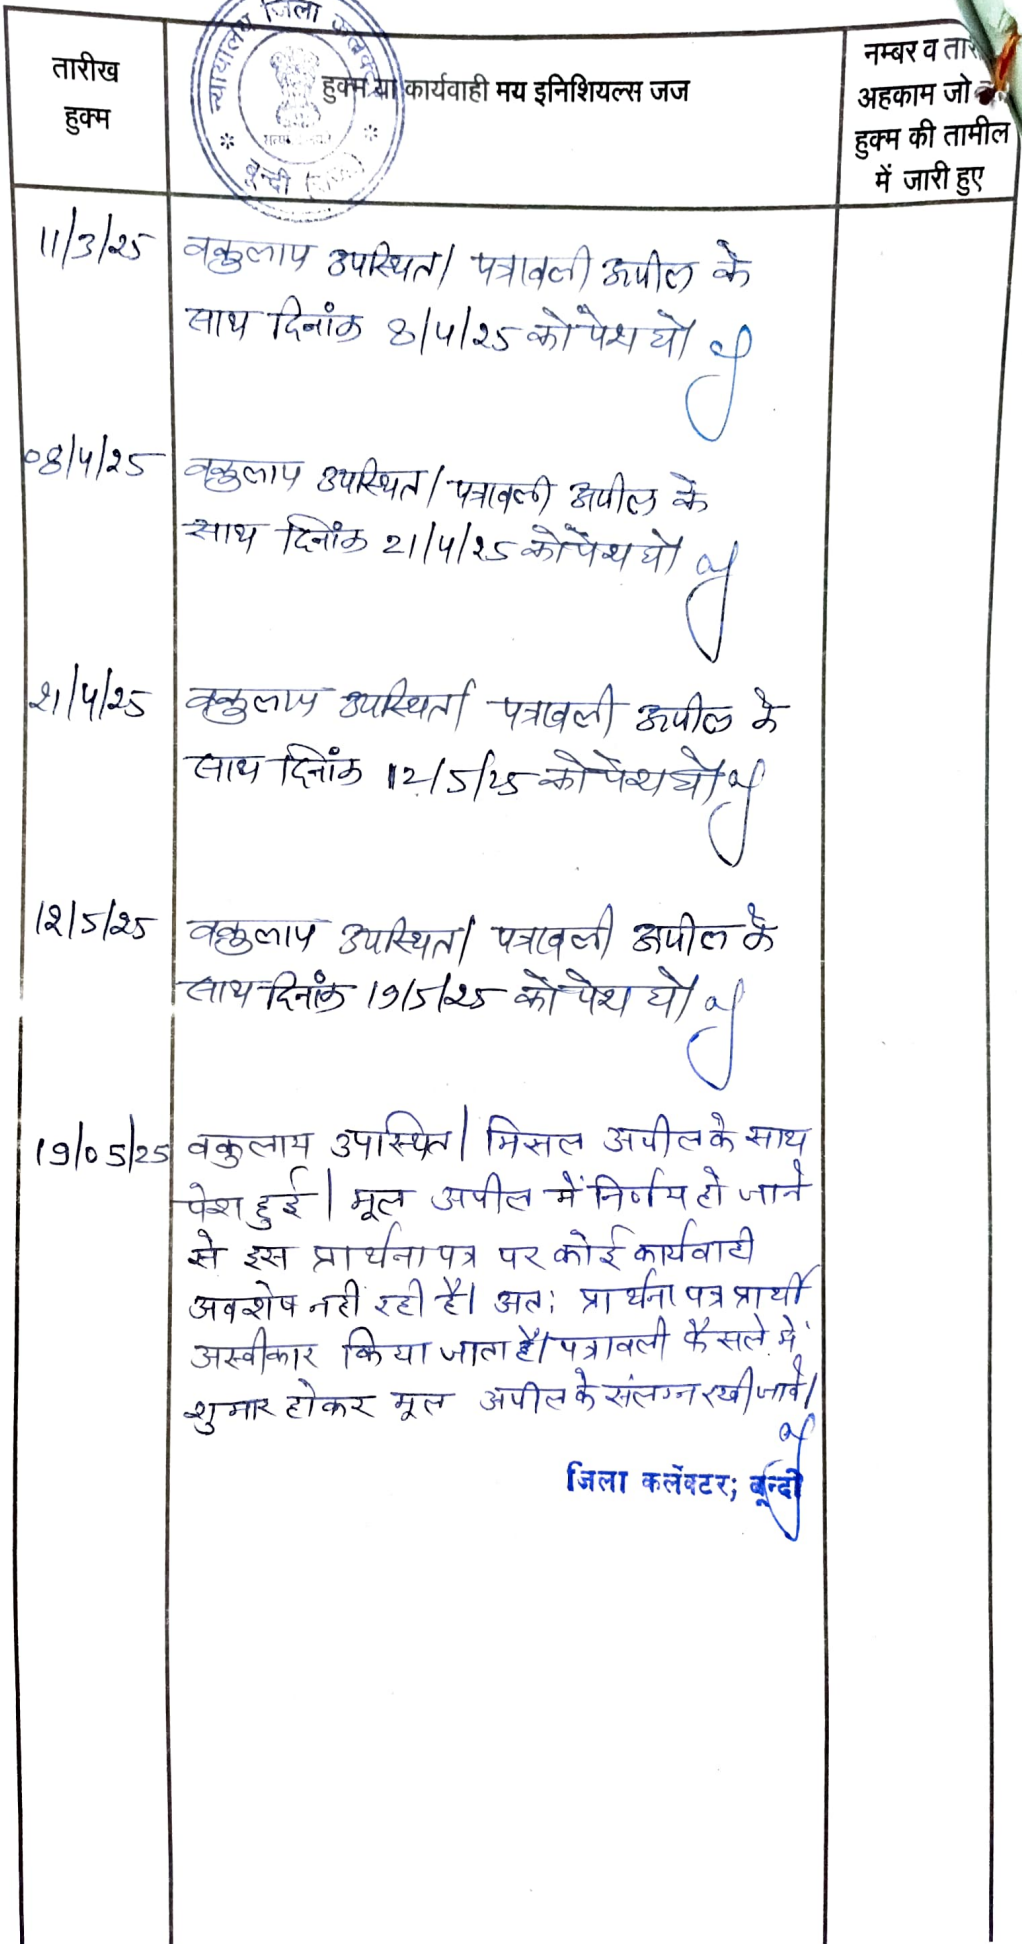 तारीख
हुक्म
हुक्म या कार्यवाही मय इनिशियल्स जज
नम्बर व तारी
अहकाम जो
हुक्म की तामील
में जारी हुए
न्यायालय जिला कलक्टर
सत्यमेव जयते
बून्दी (राज०)
11/3/25 वकुलाय उपस्थित। पत्रावली अपील के
साथ दिनांक 8/4/25 को पेश हो।
08/4/25 वकुलाय उपस्थित। पत्रावली अपील के
साथ दिनांक 21/4/25 को पेश हो।
21/4/25 वकुलाय उपस्थित। पत्रावली अपील के
साथ दिनांक 12/5/25 को पेश हो।
12/5/25 वकुलाय उपस्थित। पत्रावली अपील के
साथ दिनांक 19/5/25 को पेश हो।
19/05/25 वकुलाय उपस्थित। मिसल अपील के साथ
पेश हुई। मूल अपील में निर्णय हो जाने
से इस प्रार्थना पत्र पर कोई कार्यवाही
अवशेष नहीं रही है। अतः प्रार्थना पत्र प्रार्थी
अस्वीकार किया जाता है। पत्रावली फैसले में
शुमार होकर मूल अपील के संलग्न रखी जावे।
जिला कलेक्टर; बून्दी